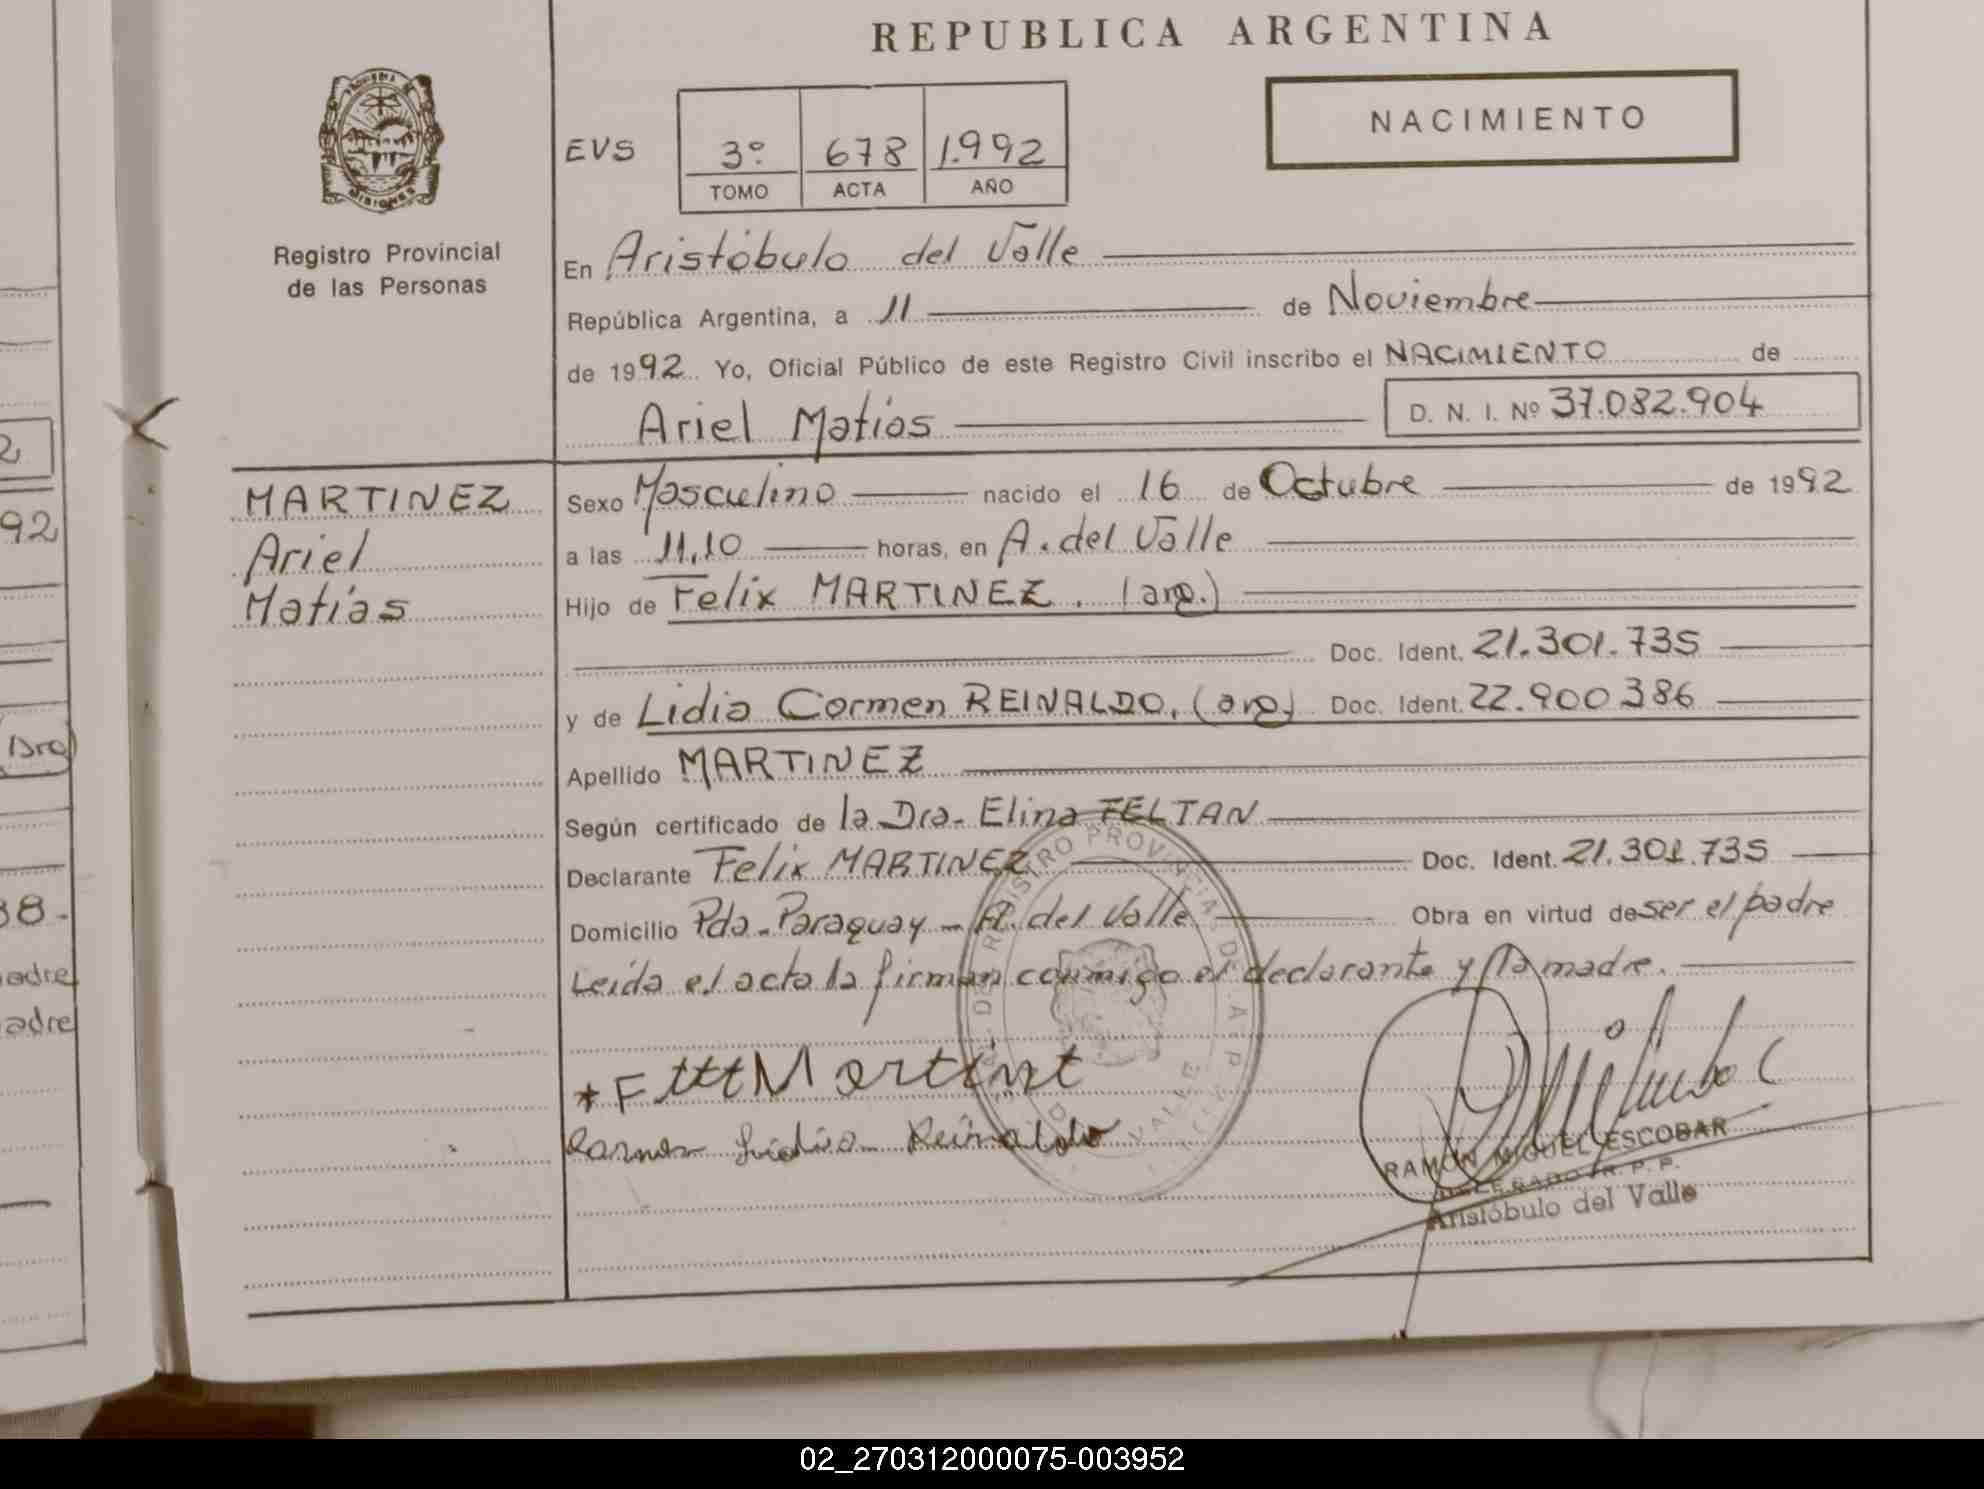 REPUBLICA ARGENTINA
NACIMIENTO
EVS
3º 678 1.992
TOMO ACTA AÑO
MISIONES
Registro Provincial
de las Personas
En Aristóbulo del Valle
República Argentina, a 11 de Noviembre
de 1992 Yo, Oficial Público de este Registro Civil inscribo el NACIMIENTO de
Ariel Matías D. N. I. Nº 37.082.904
MARTINEZ
Ariel
Matías
Sexo Masculino nacido el 16 de Octubre de 1992
a las 11,10 horas, en A. del Valle
Hijo de Felix MARTINEZ. (arg.)
Doc. Ident. 21.301.735
y de Lidia Carmen REINALDO. (arg) Doc. Ident. 22.900386
Apellido MARTINEZ
Según certificado de la Dra. Elina FELTAN
Declarante Felix MARTINEZ Doc. Ident. 21.301.735
Domicilio Pda. Paraguay - A. del Valle Obra en virtud de ser el padre
Leída el acta la firman conmigo el declarante y la madre.
RAMON MIGUEL ESCOBAR
DELEGADO R. P. P.
Aristóbulo del Valle
2
92
38.
adre
adre
02_270312000075-003952